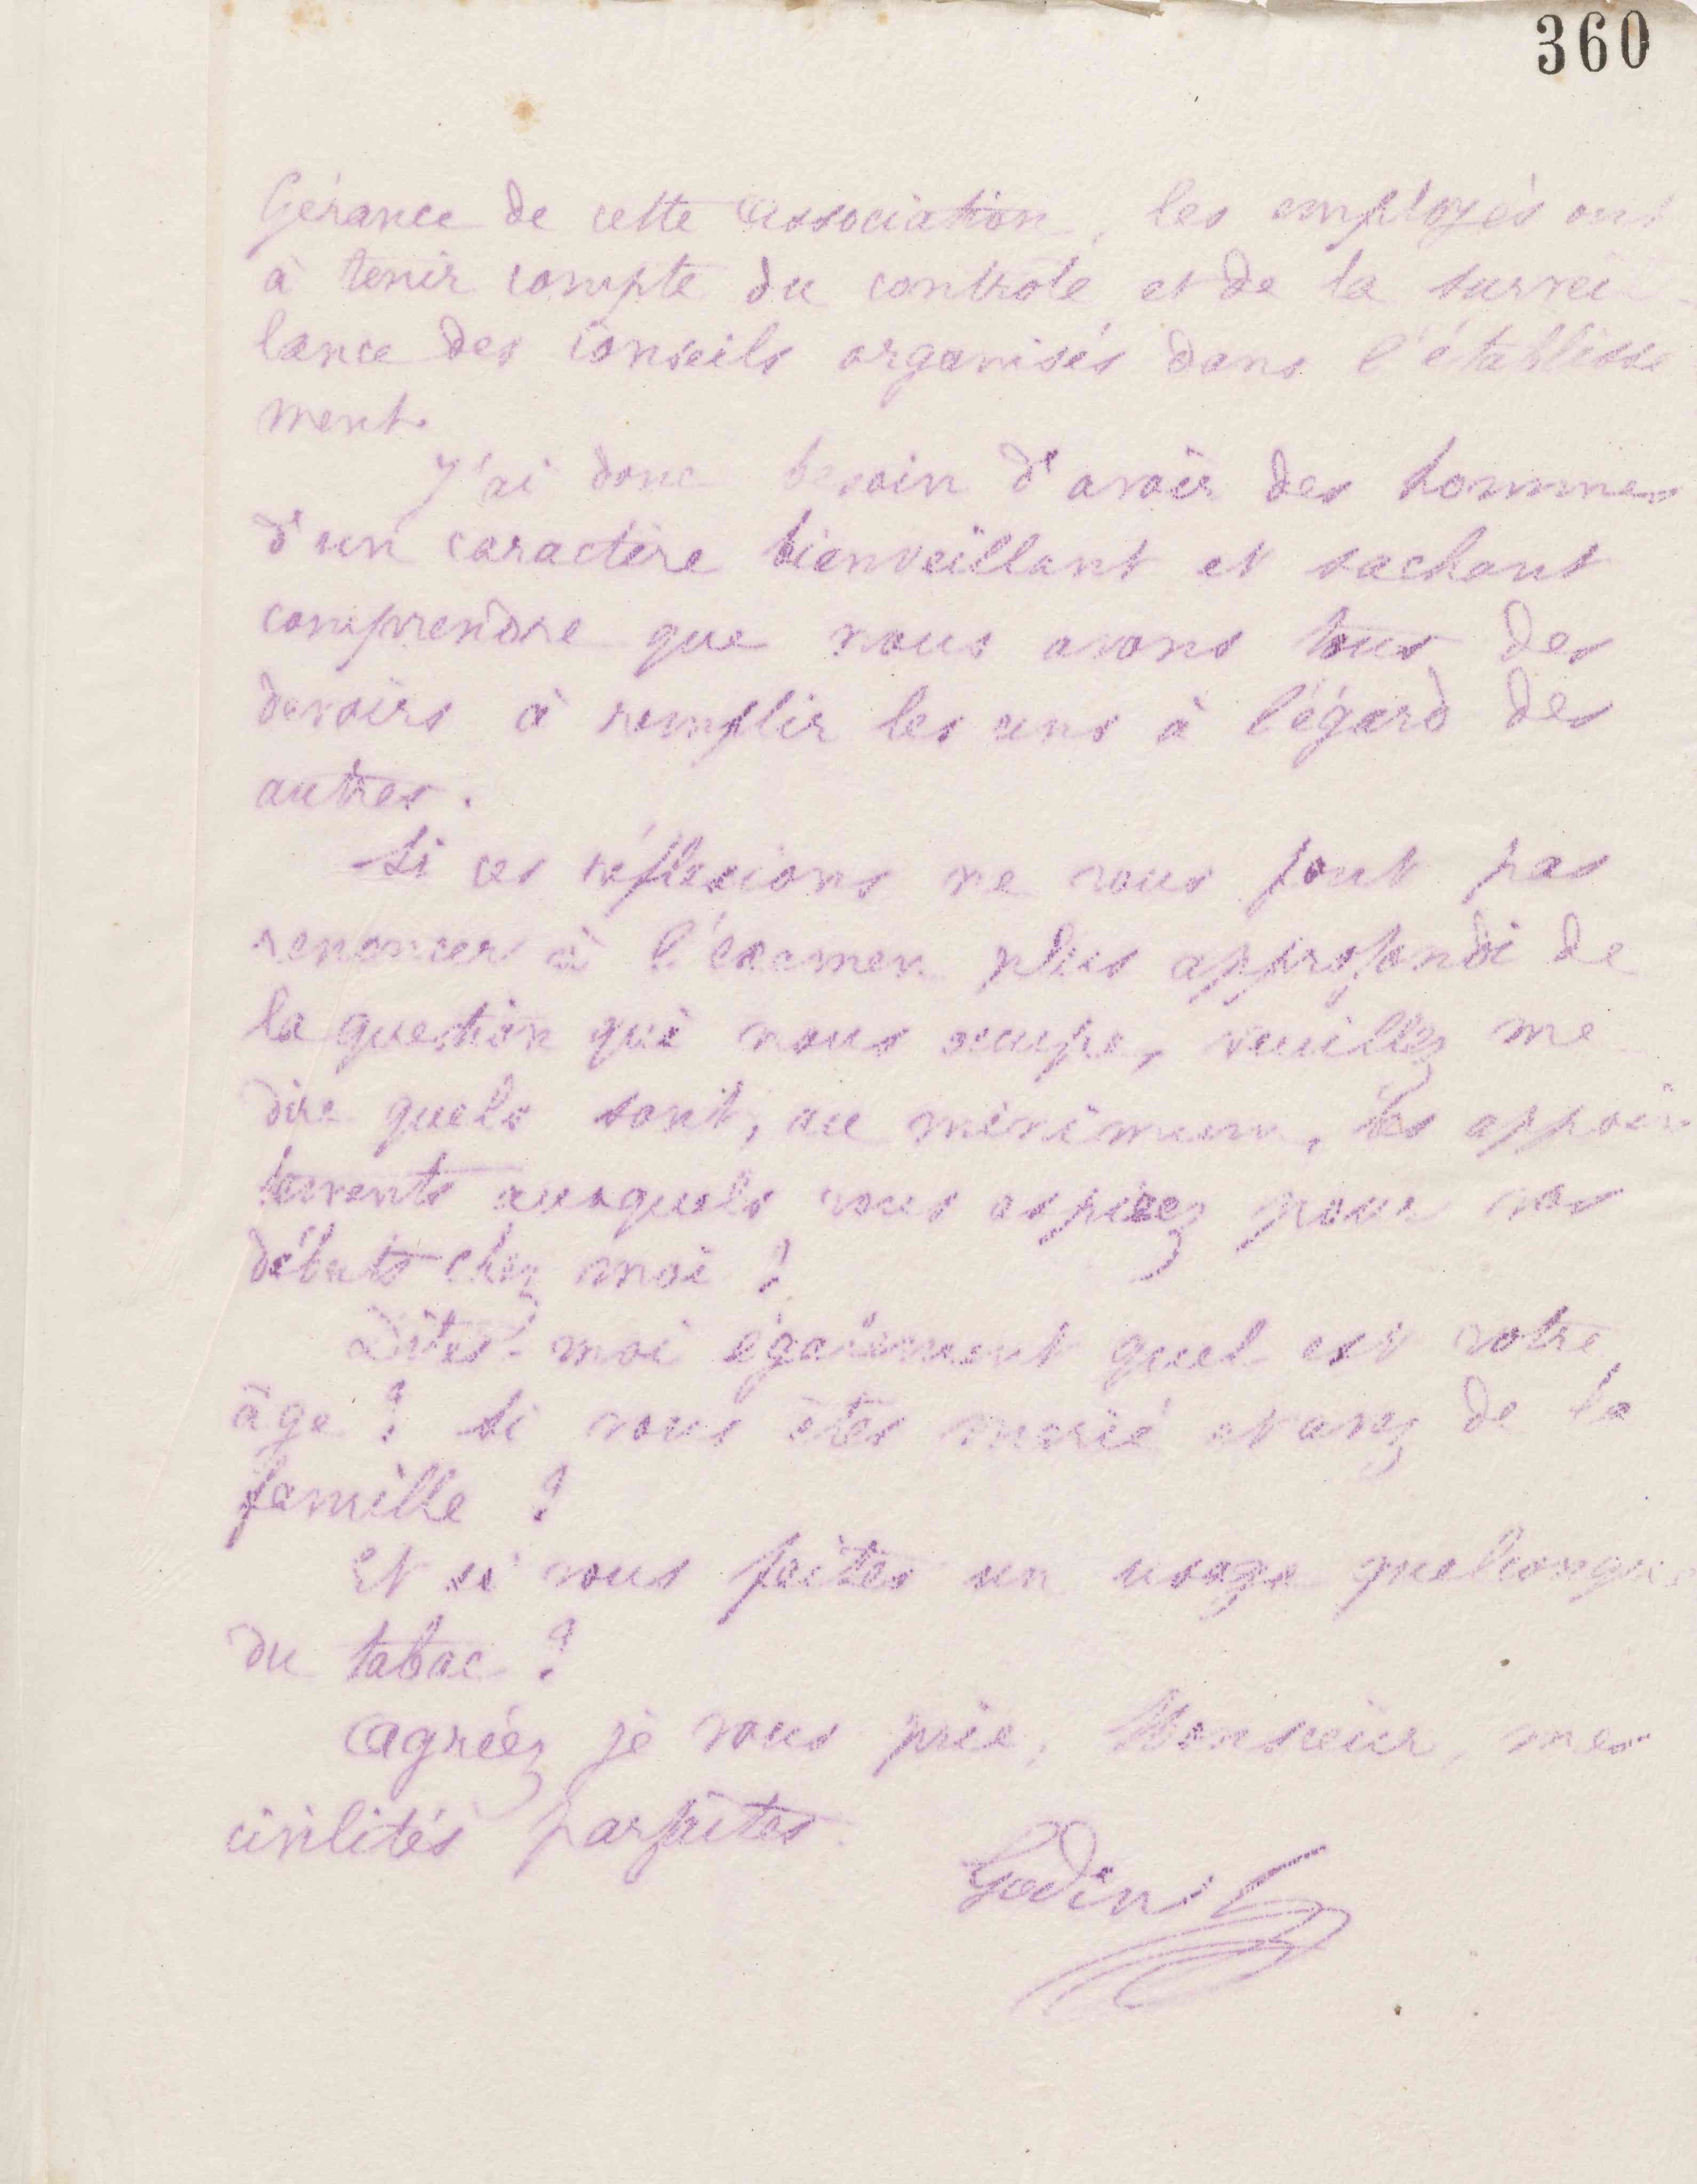 360
Gérance de cette Association, les employés ont
à tenir compte du contrôle et de la surveil-
lance des conseils organisés dans l'établisse
ment.
J'ai donc besoin d'avoir des hommes
d'un caractère bienveillant et sachant
comprendre que nous avons tous des
devoirs à remplir les uns à l'égard des
autres.
Si ces réflexions ne vous font pas
renoncer à l'examen plus approfondi de
la question qui nous occupe, veuillez me
dire quels sont, au minimum, les appoin
tements auxquels vous aspirez pour vos
débuts chez moi ?
Dites-moi également quel est votre
âge ? Si vous êtes marié et avez de la
famille ?
Et si vous faites un usage quelconque
du tabac ?
Agréez je vous prie, Monsieur, mes
civilités parfaites.
Godin